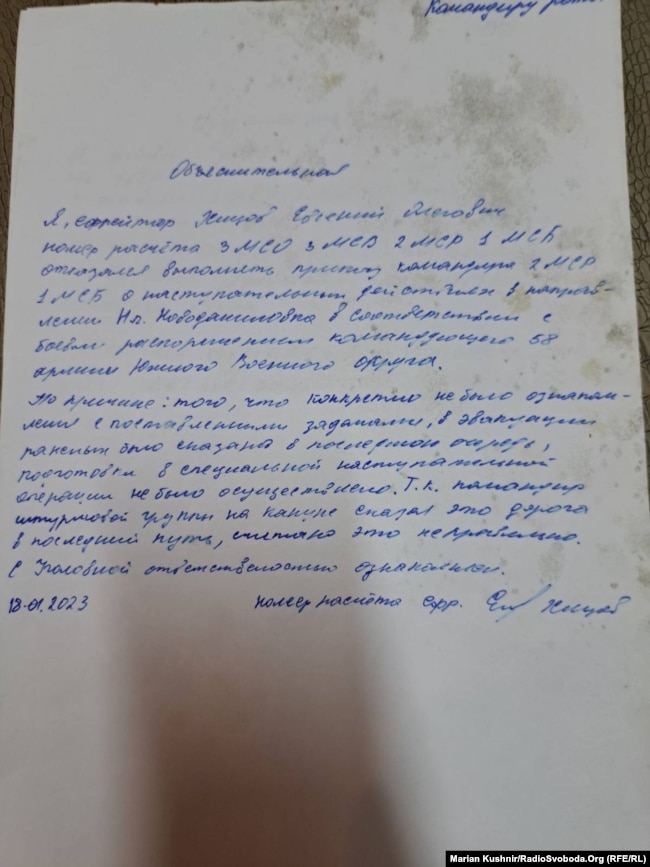 Командиру роты
Объяснительная
Я, ефрейтор Хицов Евгений Олегович
номер расчёта 3 МСО 3 МСВ 2 МСР 1 МСБ
отказался выполнить приказ командира 2 МСР
1 МСБ о наступательных действиях в направ-
лении Нп. Новоданиловка в соответствии с
боевым распоряжением командующего 58
армии Южного Военного округа.
По причине: того, что конкретно не было ознаком-
ления с поставленными задачами, в эвакуации
раненых было сказано в последнюю очередь,
подготовки в специальной наступательной
операции не было осуществлено. Т.к. командир
штурмовой группы на кануне сказал это дорога
в последний путь, считаю это неправильно.
С Уголовной ответственостью ознакомлен.
18.01.2023 номер расчёта ефр. Хицов
Marian Kushnir/RadioSvoboda.Org (RFE/RL)